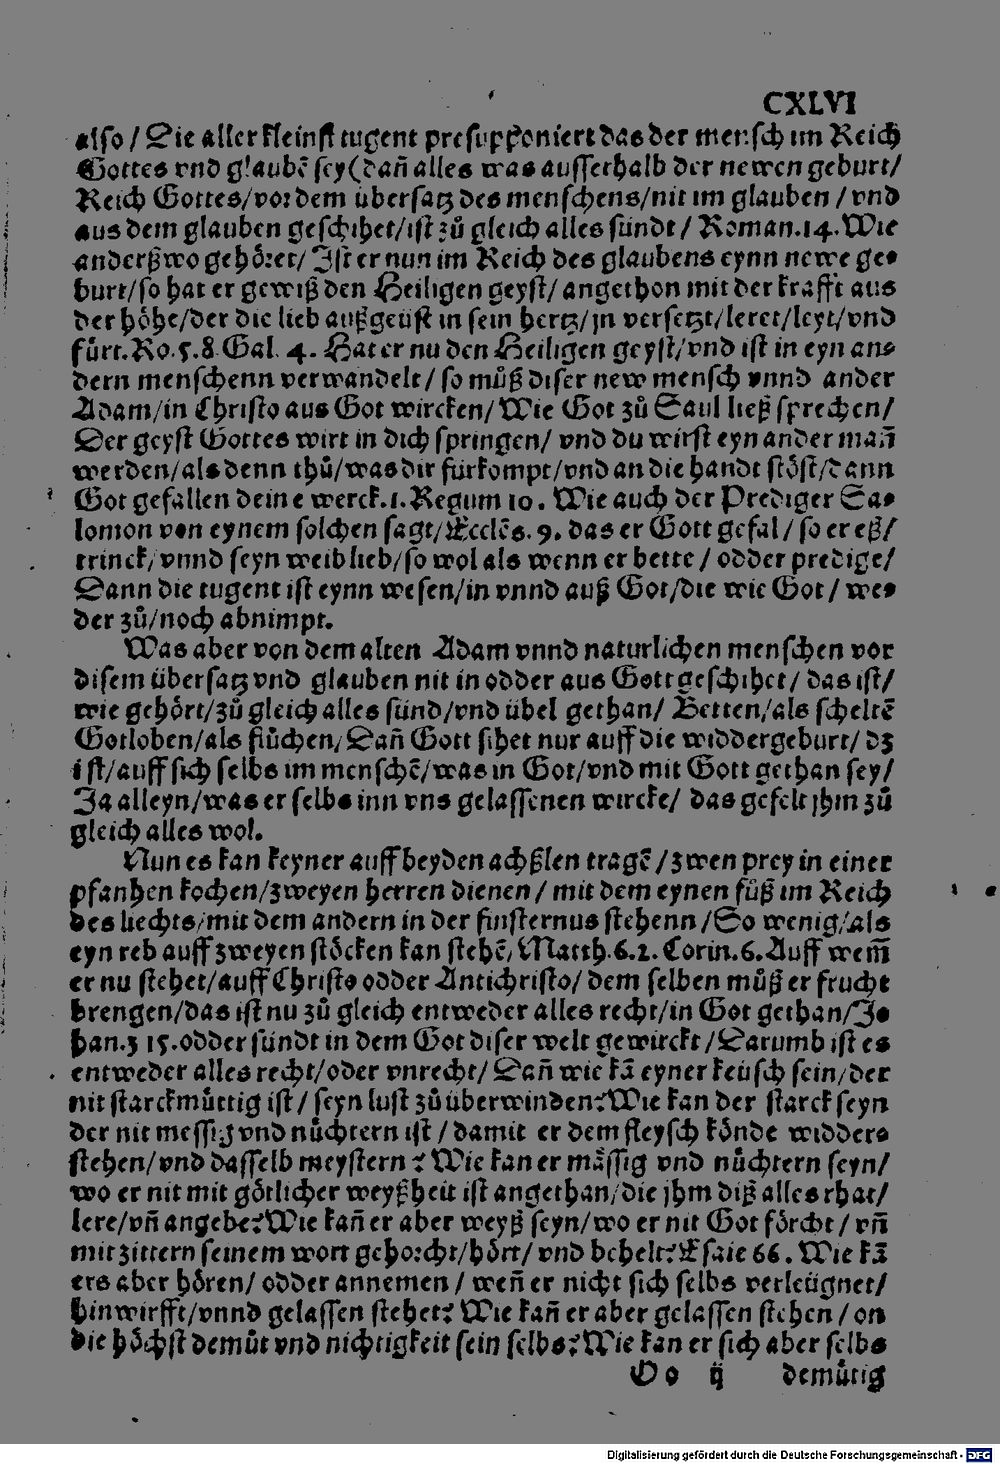 CXLVI
also / Die aller kleinst tugent presupponiert das der mensch im Reich
Gottes vnd glaubē sey (dañ alles was ausserhalb der newen geburt /
Reich Gottes / vor dem übersatz des menschens / nit im glauben / vnd
aus dem glauben geschihet / ist zů gleich alles sündt / Roman. 14. Wie
anderßwo gehöret / Ist er nun im Reich des glaubens eynn newe ge-
burt / so hat er gewiß den Heiligen geyst / angethon mit der krafft aus
der höhe / der die lieb außgeüst in sein hertz / jn versetzt / leret / leyt / vnd
fürt. Ro. 5. 8. Gal. 4. Hat er nu den Heiligen geyst / vnd ist in eyn an-
dern menschenn verwandelt / so můß diser new mensch vnnd ander
Adam / in Christo aus Got wircken / Wie Got zů Saul ließ sprechen /
Der geyst Gottes wirt in dich springen / vnd du wirst eyn ander mañ
werden / als denn thů / was dir fürkompt / vnd an die handt stöst / dann
Got gefallen deine werck. 1. Regum 10. Wie auch der Prediger Sa-
lomon von eynem solchen sagt / Ecclēs. 9. das er Gott gefal / so er eß /
trinck / vnnd seyn weib lieb / so wol als wenn er bette / odder predige /
Dann die tugent ist eynn wesen / in vnnd auß Got / die wie Got / we-
der zů / noch abnimpt.
Was aber von dem alten Adam vnnd naturlichen menschen vor
disem übersatz vnd glauben nit in odder aus Gott geschihet / das ist /
wie gehört / zů gleich alles sünd / vnd übel gethan / Betten / als scheltē
Gotloben / als flůchen / Dañ Gott sihet nur auff die widdergeburt / dz
ist / auff sich selbs im menschē / was in Got / vnd mit Gott gethan sey /
Ja alleyn / was er selbs inn vns gelassenen wircke / das gefelt jhm zů
gleich alles wol.
Nun es kan keyner auff beyden achßlen tragē / zwen prey in einer
pfanhen kochen / zweyen herren dienen / mit dem eynen fůß im Reich
des liechts / mit dem andern in der finsternus stehenn / So wenig / als
eyn reb auff zweyen stöcken kan stehē / Matth. 6. 2. Corin. 6. Auff wem̃
er nu stehet / auff Christo odder Antichristo / dem selben můß er frucht
brengen / das ist nu zů gleich entweder alles recht / in Got gethan / Jo-
han. 3 15. odder sündt in dem Got diser welt gewirckt / Darumb ist es
entweder alles recht / oder vnrecht / Dañ wie kā eyner keüsch sein / der
nit starckmůttig ist / seyn lust zů überwinden? Wie kan der starck seyn
der nit messig vnd nůchtern ist / damit er dem fleysch könde widder-
stehen / vnd dasselb meystern? Wie kan er mässig vnd nůchtern seyn /
wo er nit mit götlicher weyßheit ist angethan / die jhm diß alles rhat /
lere / vñ angebe? Wie kañ er aber weyß seyn / wo er nit Got förcht / vñ
mit zittern seinem wort gehorcht / hört / vnd behelt? Esaie 66. Wie kā
ers aber hören / odder annemen / weñ er nicht sich selbs verleügnet /
hinwirfft / vnnd gelassen stehet? Wie kañ er aber gelassen stehen / on
die höchst demůt vnd nichtigkeit sein selbs? Wie kan er sich aber selbs
Oo ij demůtig
Digitalisierung gefördert durch die Deutsche Forschungsgemeinschaft - DFG